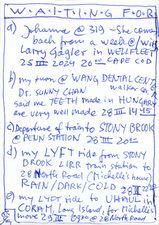 WAITING FOR
a) Johanna @ 319 ~ She comes
back from a week @/w/
Larry Gagler in WELLFLEET
25 III 2024 20 CAPE COD
b) my turn @ WANG DENTAL CENT
Dr. SUNNY CHAN
said me TEETH made in HUNGARY
are very well made 28 III 14 45
c) Departure of train to STONY BROOK
@ PENN STATION 28 III 20
d) my LYFT ride from STONY
BROOK LIRR train station to
28 North Road (Michelle's home)
RAIN/DARK/COLD 28 III 22
e) my LYFT ride to UHAUL in
CORAM, Long Island, for Michelle's
move 29 III 0920 @ 28 North Road